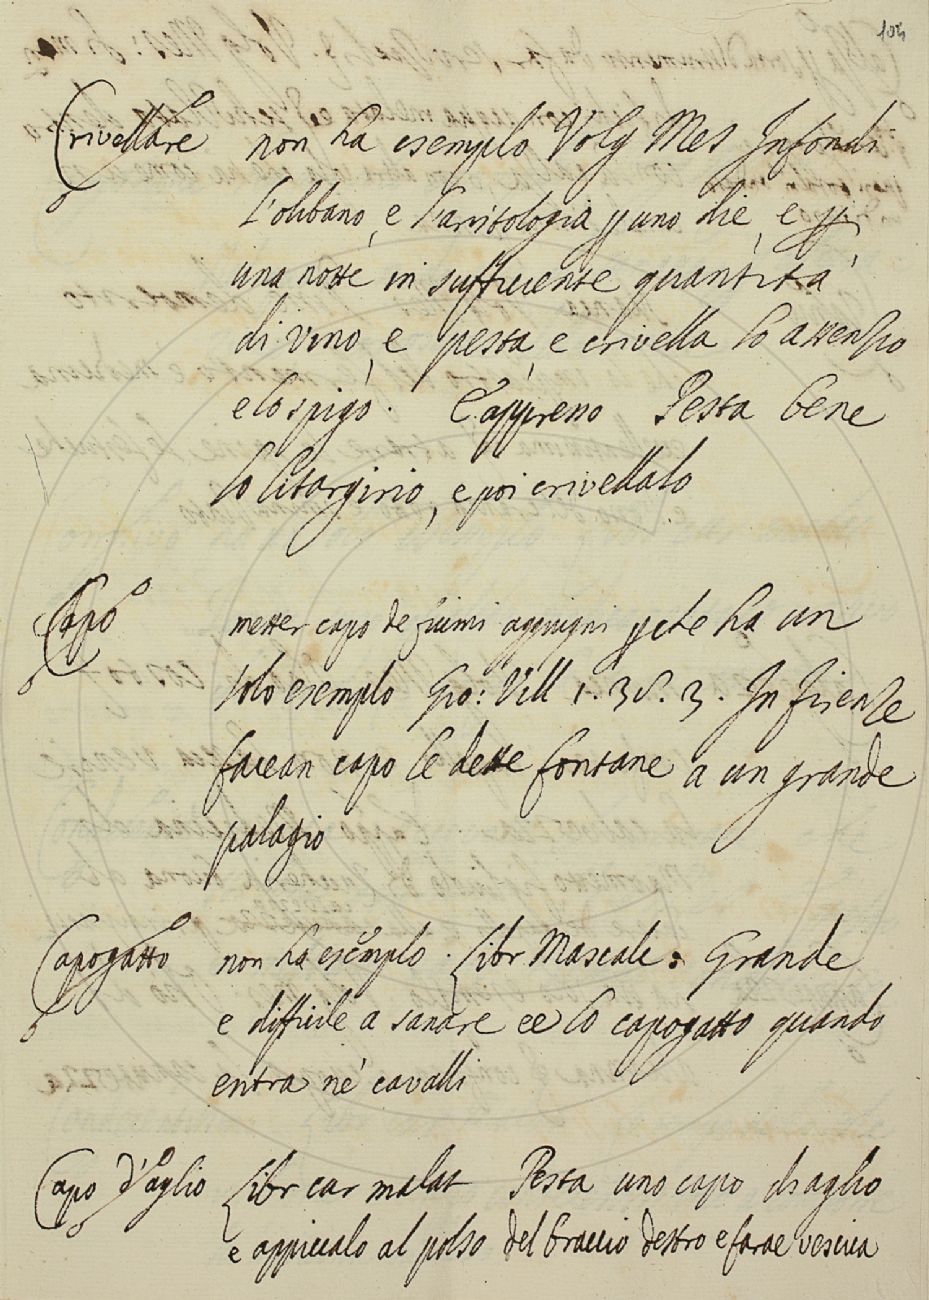 Crivellare non ha esemplo Volg Mes Infondi
l'olibano, e l'aristologia p uno die, e p
una notte in sufficiente quantità
di vino, e pesta, e crivella lo assenzio
e lo spigo. E appresso Pesta bene
lo litargirio, e poi crivellalo
Capo metter capo de fiumi aggiugni pche ha un
solo esemplo Gio: Vill 1. 38. 3. In Firenze
facean capo le dette fontane a un grande
palagio
Capogatto non ha esemplo. Libr Mascalc: Grande
e difficile a sanare ee lo capogatto quando
entra ne' cavalli
Capo d'aglio Libr cur malat Pesta uno capo di aglio
e appiccalo al polso del braccio destro e farae vescica